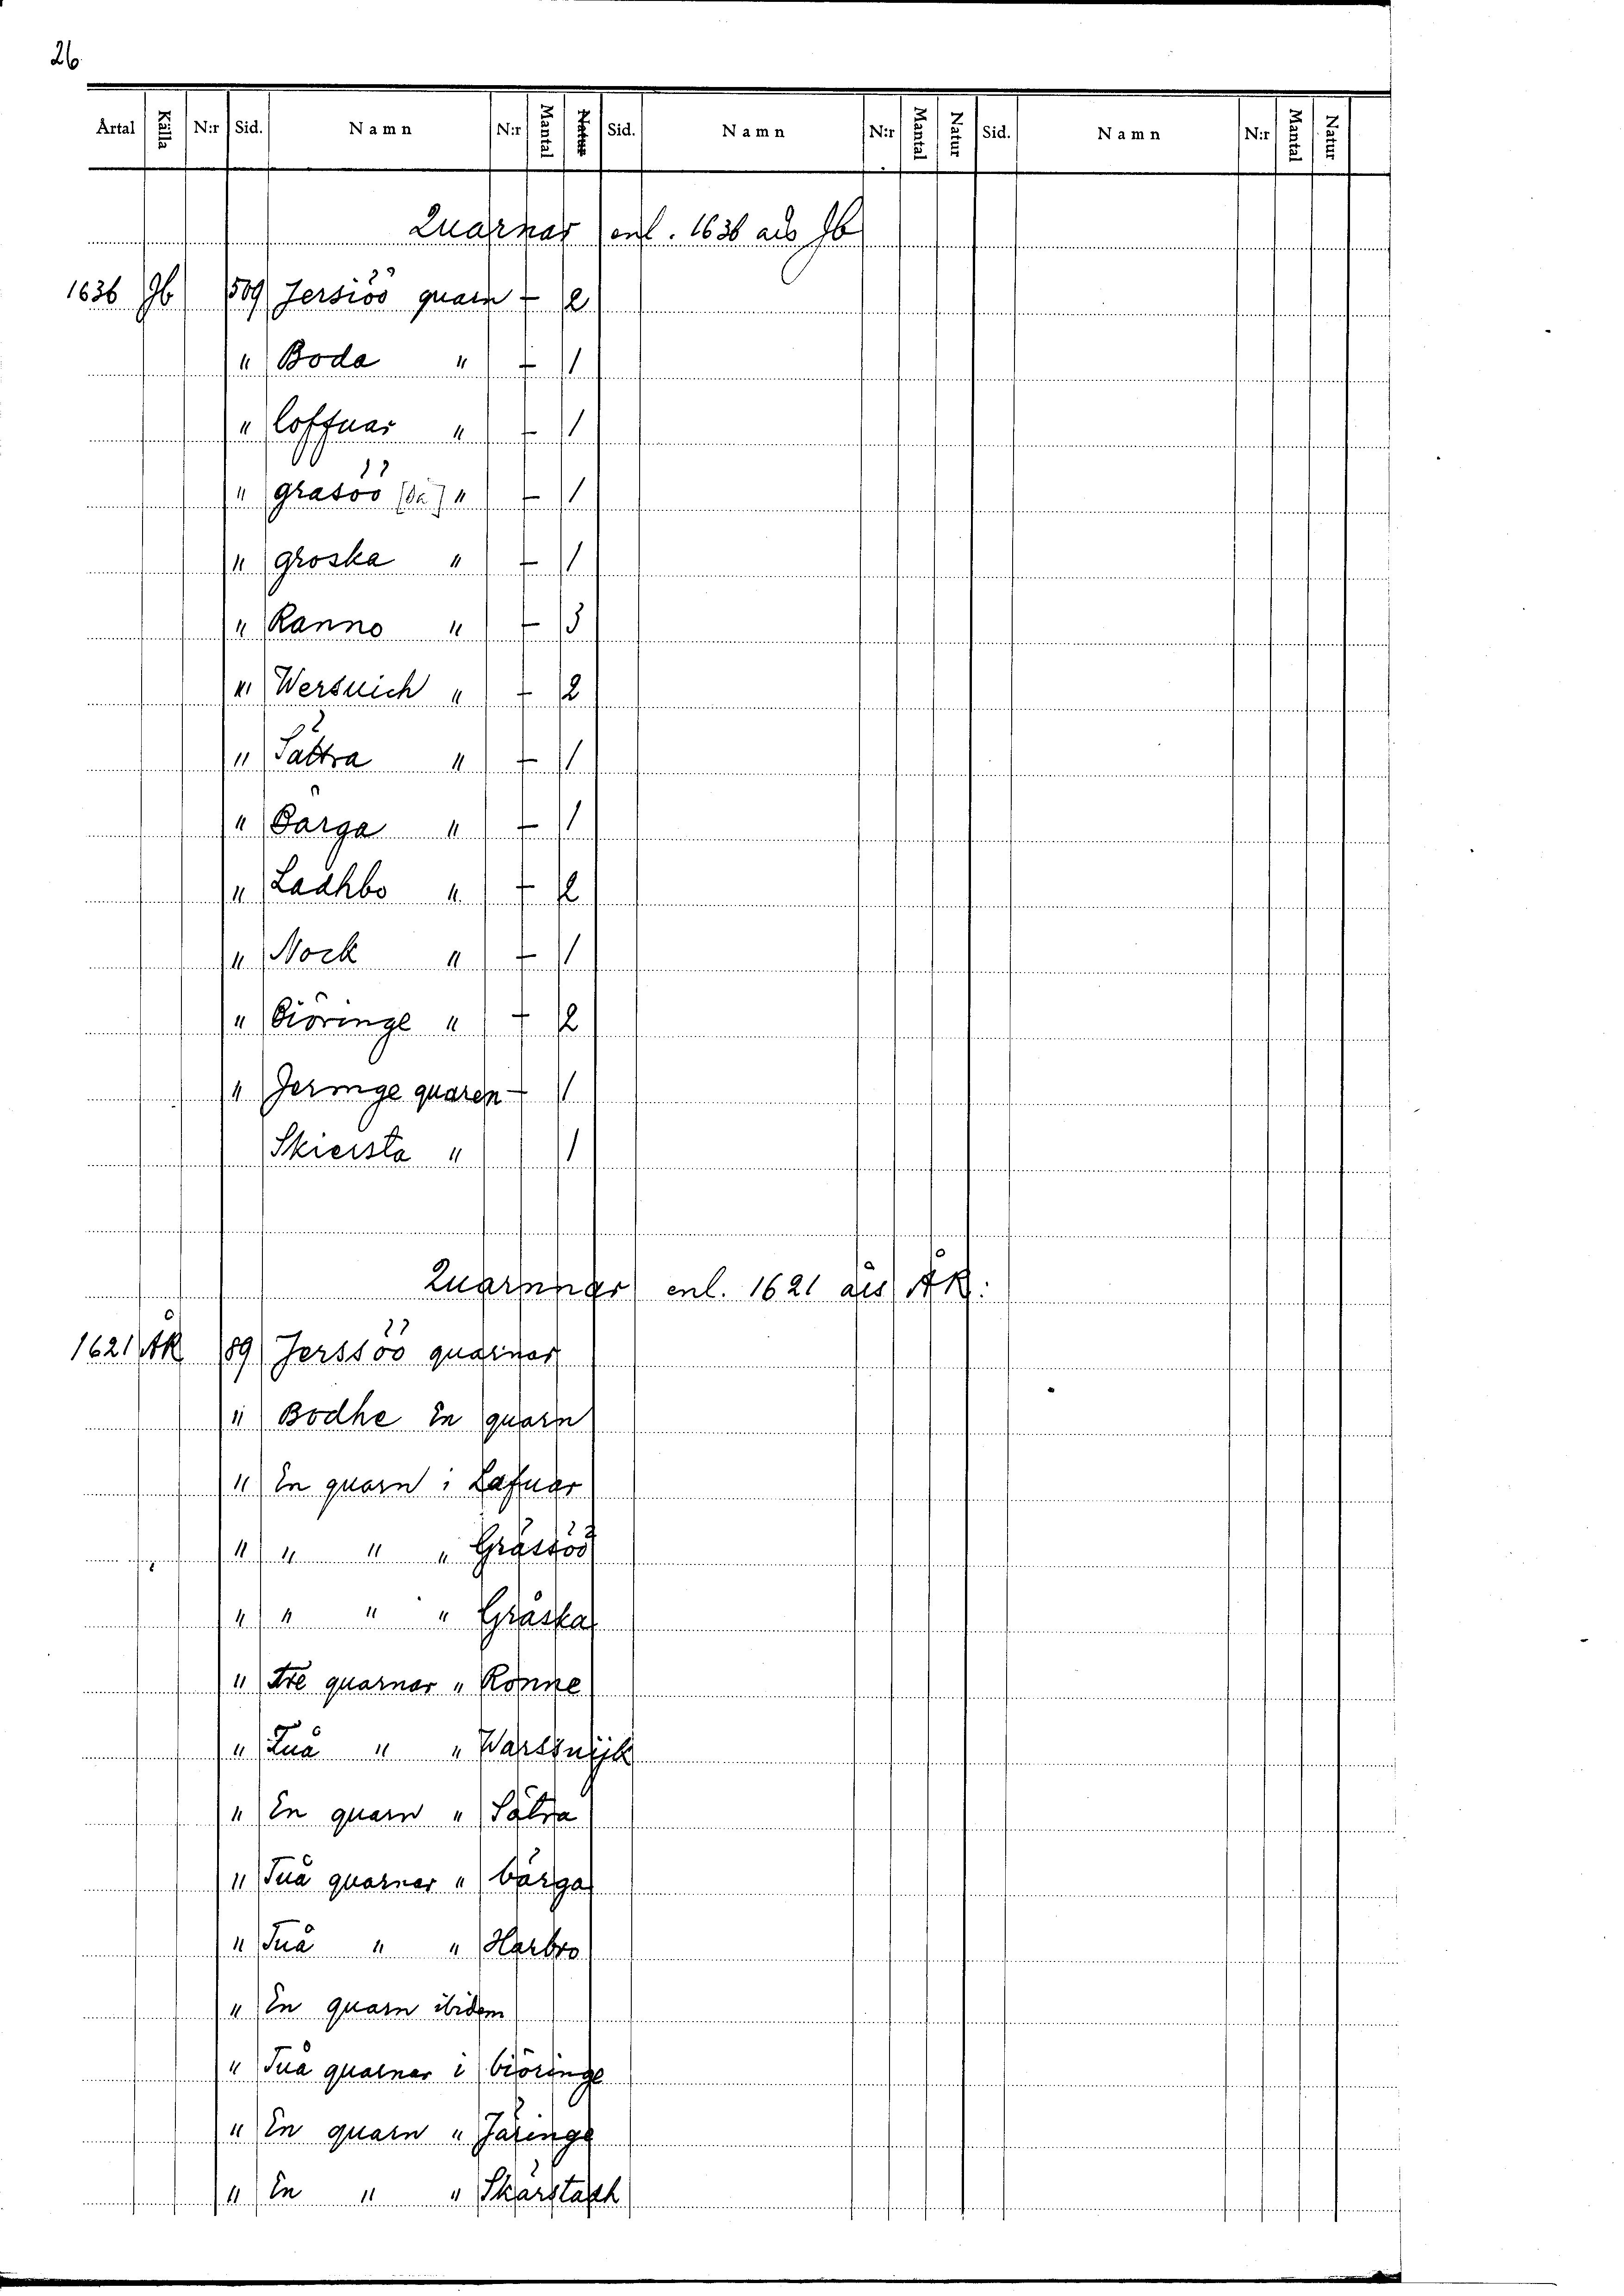 26
Årtal Källa N:r Sid. Namn N:r Mantal Natur Sid. Namn N:r Mantal Natur Sid. Namn N:r Mantal Natur
Quarnar enl. 1636 års Jb
1636 Jb 509 Jersiöö quarn - 2
" Boda " - 1
" loffuar " - 1
" grasöö " - 1
" groska " - 1
" Ranno " - 3
" Wersuich " - 2
" Sättra " - 1
" Barga " - 1
" Ladhbo " - 2
" Nock " - 1
" Biöringe " - 2
" Jeringe quaren - 1
Skiersta " 1
Quarnnar enl. 1621 års ÅK:
1621 ÅK 89 Jerssöö quarnar
" Bodhe En quarn
" En quarn i Lafuar
" " " " Grässöö
" " " " Gråska
" Tre quarnar " Rönne
" Tuå " " Warssuijk
" En quarn " Sätra
" Tuå quarnar " bärga
" Tuå " " Harbro
" En quarn ibidem
" Tuå quarnar i biöringe
" En quarn " Järinge
" En " " Skärstadh